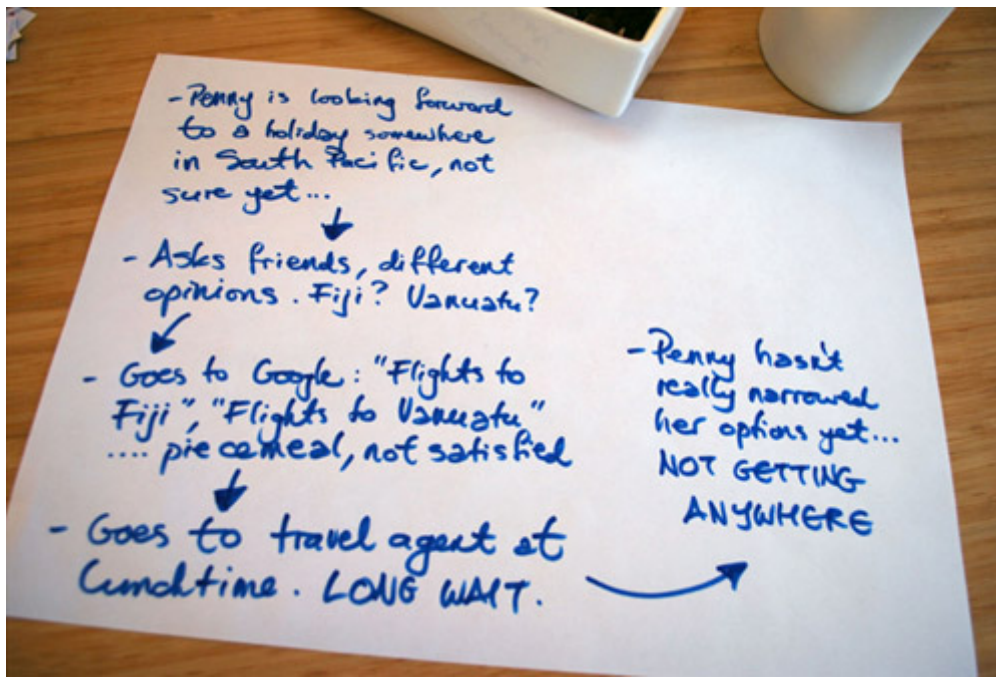 - Penny is looking forward
to a holiday somewhere
in South Pacific, not
sure yet...
- Asks friends, different
opinions. Fiji? Vanuatu?
- Goes to Google: "Flights to
Fiji", "Flights to Vanuatu"
.... piecemeal, not satisfied
- Goes to travel agent at
lunchtime. LONG WAIT.
- Penny hasn't
really narrowed
her options yet...
NOT GETTING
ANYWHERE